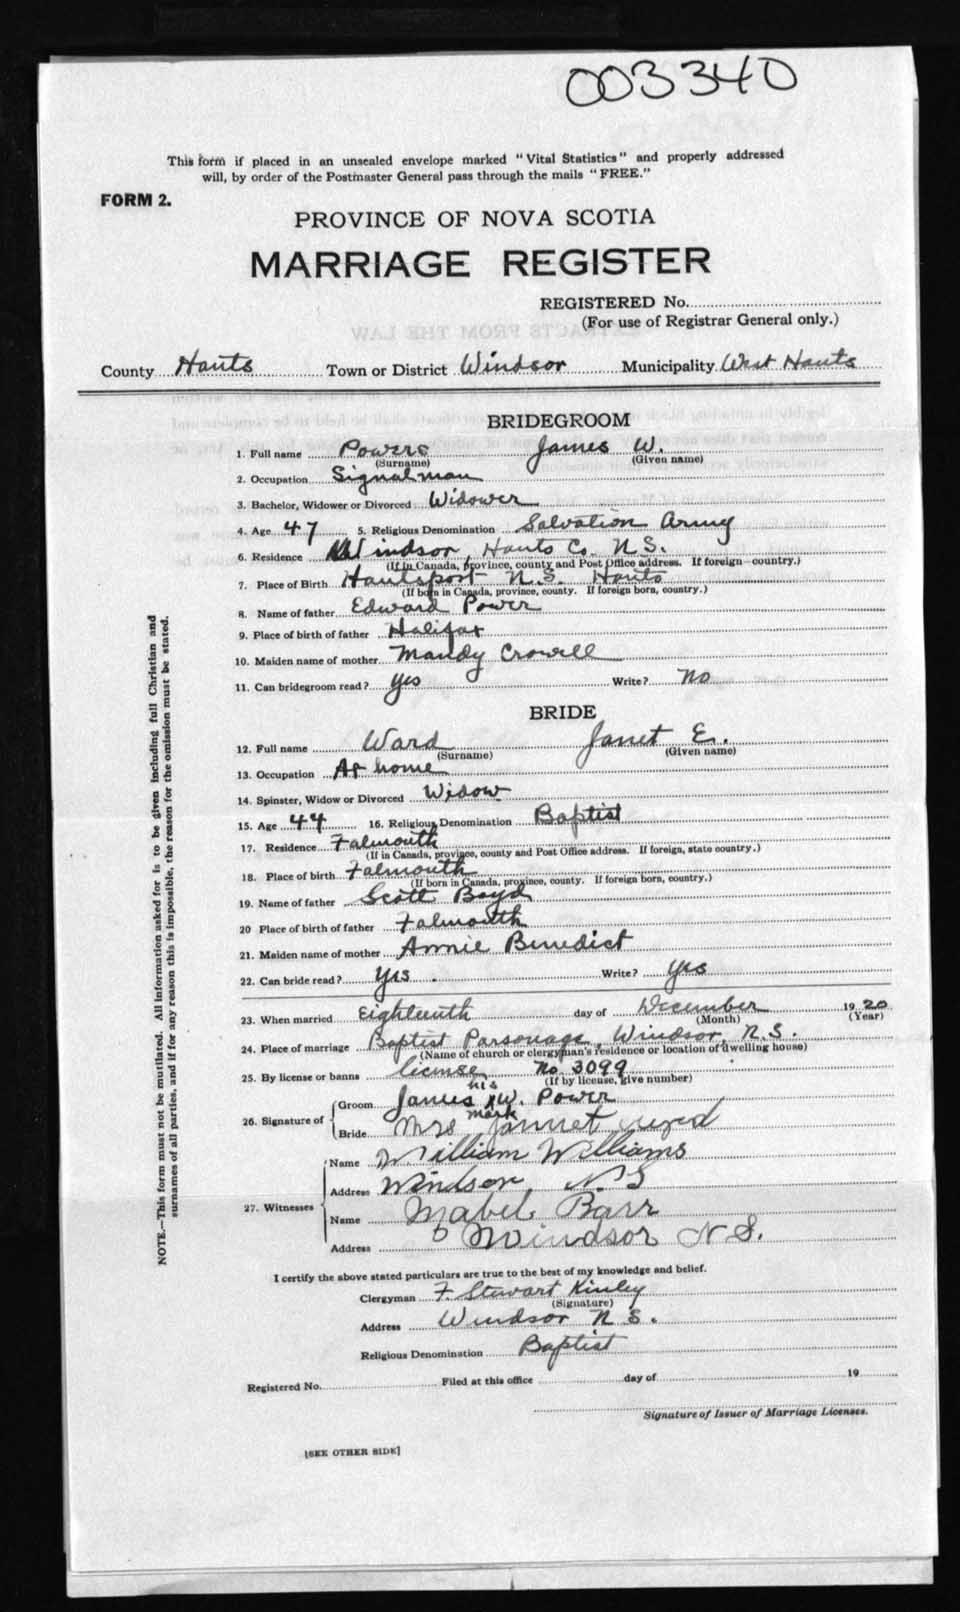 003340
This form if placed in an unsealed envelope marked "Vital Statistics" and properly addressed
will, by order of the Postmaster General pass through the mails "FREE."
FORM 2.
PROVINCE OF NOVA SCOTIA
MARRIAGE REGISTER
REGISTERED No.
(For use of Registrar General only.)
County Hants Town or District Windsor Municipality West Hants
BRIDEGROOM
1. Full name Powers James W.
(Surname) (Given name)
2. Occupation Signalman
3. Bachelor, Widower or Divorced Widower
4. Age 47 5. Religious Denomination Salvation Army
6. Residence Windsor, Hants Co. N.S.
(If in Canada, province, county and Post Office address. If foreign country.)
7. Place of Birth Hantsport N.S. Hants
(If born in Canada, province, county. If foreign born, country.)
8. Name of father Edward Power
9. Place of birth of father Halifax
10. Maiden name of mother Mandy Crowell
11. Can bridegroom read? yes Write? No
BRIDE
12. Full name Ward Janet E.
(Surname) (Given name)
13. Occupation At home
14. Spinster, Widow or Divorced Widow
15. Age 44 16. Religious Denomination Baptist
17. Residence Falmouth
(If in Canada, province, county and Post Office address. If foreign, state country.)
18. Place of birth Falmouth
(If born in Canada, province, county. If foreign born, country.)
19. Name of father Scott Boyd
20 Place of birth of father Falmouth
21. Maiden name of mother Annie Benedict
22. Can bride read? Yes. Write? yes
23. When married Eighteenth day of December 1920
(Month) (Year)
24. Place of marriage Baptist Parsonage, Windsor, N.S.
(Name of church or clergyman's residence or location of dwelling house)
25. By license or banns license No. 3099
(If by license, give number)
his
26. Signature of Groom James W. Power
mark
Bride Mrs Jannet
27. Witnesses Name William Williams
Address Windsor N.S
Name Mabel Barr
Address Windsor N.S.
I certify the above stated particulars are true to the best of my knowledge and belief.
Clergyman F. Stewart Kinley
(Signature)
Address Windsor N.S.
Religious Denomination Baptist
Registered No. Filed at this office day of 19
Signature of Issuer of Marriage Licenses.
[SEE OTHER SIDE]
NOTE.—This form must not be mutilated. All information asked for is to be given including full Christian and
surnames of all parties, and if for any reason this is impossible, the reason for the omission must be stated.